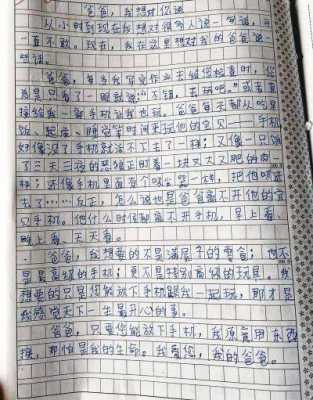 爸爸，我想对你说
从小时到现在我想对很多人说一句话，可一
直不敢。现在，我在这里想对我的爸爸说一
些话。
爸爸，每当我写完作业去给您检查时，您
总是只看了一眼就说：“不错，去玩吧。”或者直
接给我一部手机让我也玩。爸爸每天都从吃早
饭、起床、睡觉等时间来玩他的宝贝——手机
好像没了手机就活不下去了一样；又像一只饿
了三天三夜的恶狼正盯着一块又大又肥的肉一
样；还像手机里面有个吸尘器一样，把他吸进
去了……反正，怎么说也是爸爸离不开他的宝
贝手机。他什么时候都离不开手机，早上看、
晚上看、天天看。
爸爸，我想要的不是满屋子的零食；也不
是最高级的手机；更不是特别高级的玩具。我
想要的只是您能放下手机跟我一起玩，那才是
我感觉天下一生最开心的事。
爸爸，只要您能放下手机，我愿意用东西
换，那怕是我的生命。我爱您，我的爸爸。